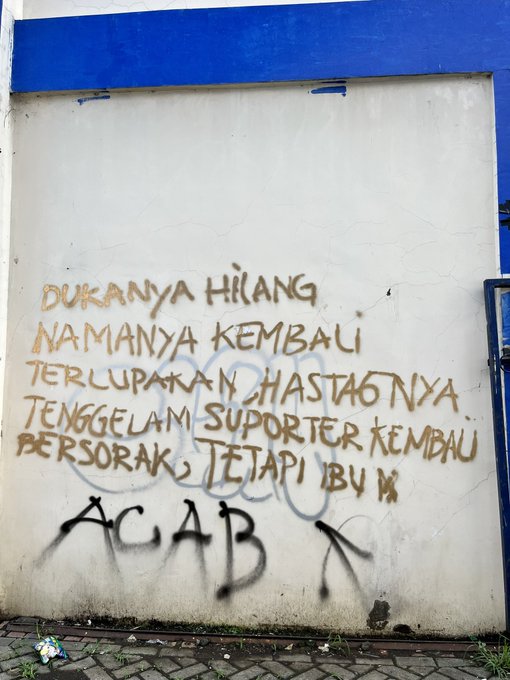 DUKANYA HiLANG
NAMANYA KEMBALI
TERLUPAKAN, HASTAGNYA
TENGGELAM SUPORTER KEMBALI
BERSORAK, TETAPI IBU
ACAB